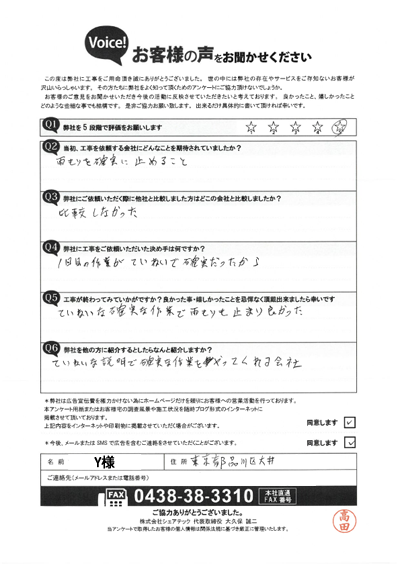 Voice!
お客様の声をお聞かせください
この度は弊社に工事をご用命頂き誠にありがとうございました。世の中には弊社の存在やサービスをご存知ないお客様が
沢山いらっしゃいます。その方たちに弊社をよく知って頂くためのアンケートにご協力頂けないでしょうか。
お客様のご意見をお聞かせいただき今後の活動に反映させていただきたいと考えております。良かったこと、嬉しかったこと
どのような些細な事でも結構です。是非ご協力お願い致します。出来るだけ具体的に書いて頂ければ幸いです。
Q1 弊社を5段階で評価をお願いします
Q2 当初、工事を依頼する会社にどんなことを期待されていましたか?
雨もりを確実に止めること
Q3 弊社にご依頼いただく際に他社と比較しました方はどこの会社と比較しましたか?
比較しなかった
Q4 弊社に工事をご依頼いただいた決め手は何ですか?
1回目の作業がていねいで確実だったから
Q5 工事が終わってみていかがですか?良かった事・嬉しかったことを忌憚なく頂戴出来ましたら幸いです
ていねいな確実な作業で雨もりも止まり良かった
Q6 弊社を他の方に紹介するとしたらなんと紹介しますか?
ていねいな説明で確実な作業をやってくれる会社
*弊社は広告宣伝費を極力かけない為にホームページだけを頼りにお客様への営業活動を行っております。
本アンケート用紙またはお客様宅の調査風景や施工状況を随時ブログ形式のインターネットに
掲載させて頂いております。
上記内容をインターネットや印刷物に掲載させていただく場合がございます。 同意します
*今後、メールまたはSMSで広告を含むご連絡をさせていただくことがございます。 同意します
名前 Y様 住所 東京都品川区大井
ご連絡先(メールアドレスまたは電話番号)
FAX 0438-38-3310 本社直通 FAX番号
ご協力ありがとうございました。
株式会社シェアテック 代表取締役 大久保 誠二
当アンケートで取得したお客様の個人情報は関係法規に基づき厳正に管理いたします。
高田